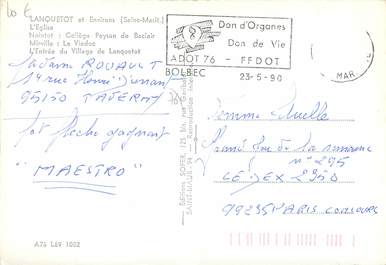 LANQUETOT et Environs (Seine-Marit.)
L'Eglise
Nointot : Collège Paysan de Baclair
Mirville : Le Viaduc
L'Entrée du Village de Lanquetot
Don d'Organes
Don de Vie
ADOT 76 - FFDOT
BOLBEC
23-5-90
MAR
Madame ROUAULT
14 rue Henri Dunant
95150 TAVERNY
jeu fleche gagnant
"MAESTRO"
Editions SOFER, 125 bis, rue Garibaldi
SAINT-MAUR - 94 - Reproduction Inter
Femme Actuelle
Grand Jeu de la semaine
n° 295
CEDEX 2950
99235 PARIS CONCOURS
A76 L69 1002